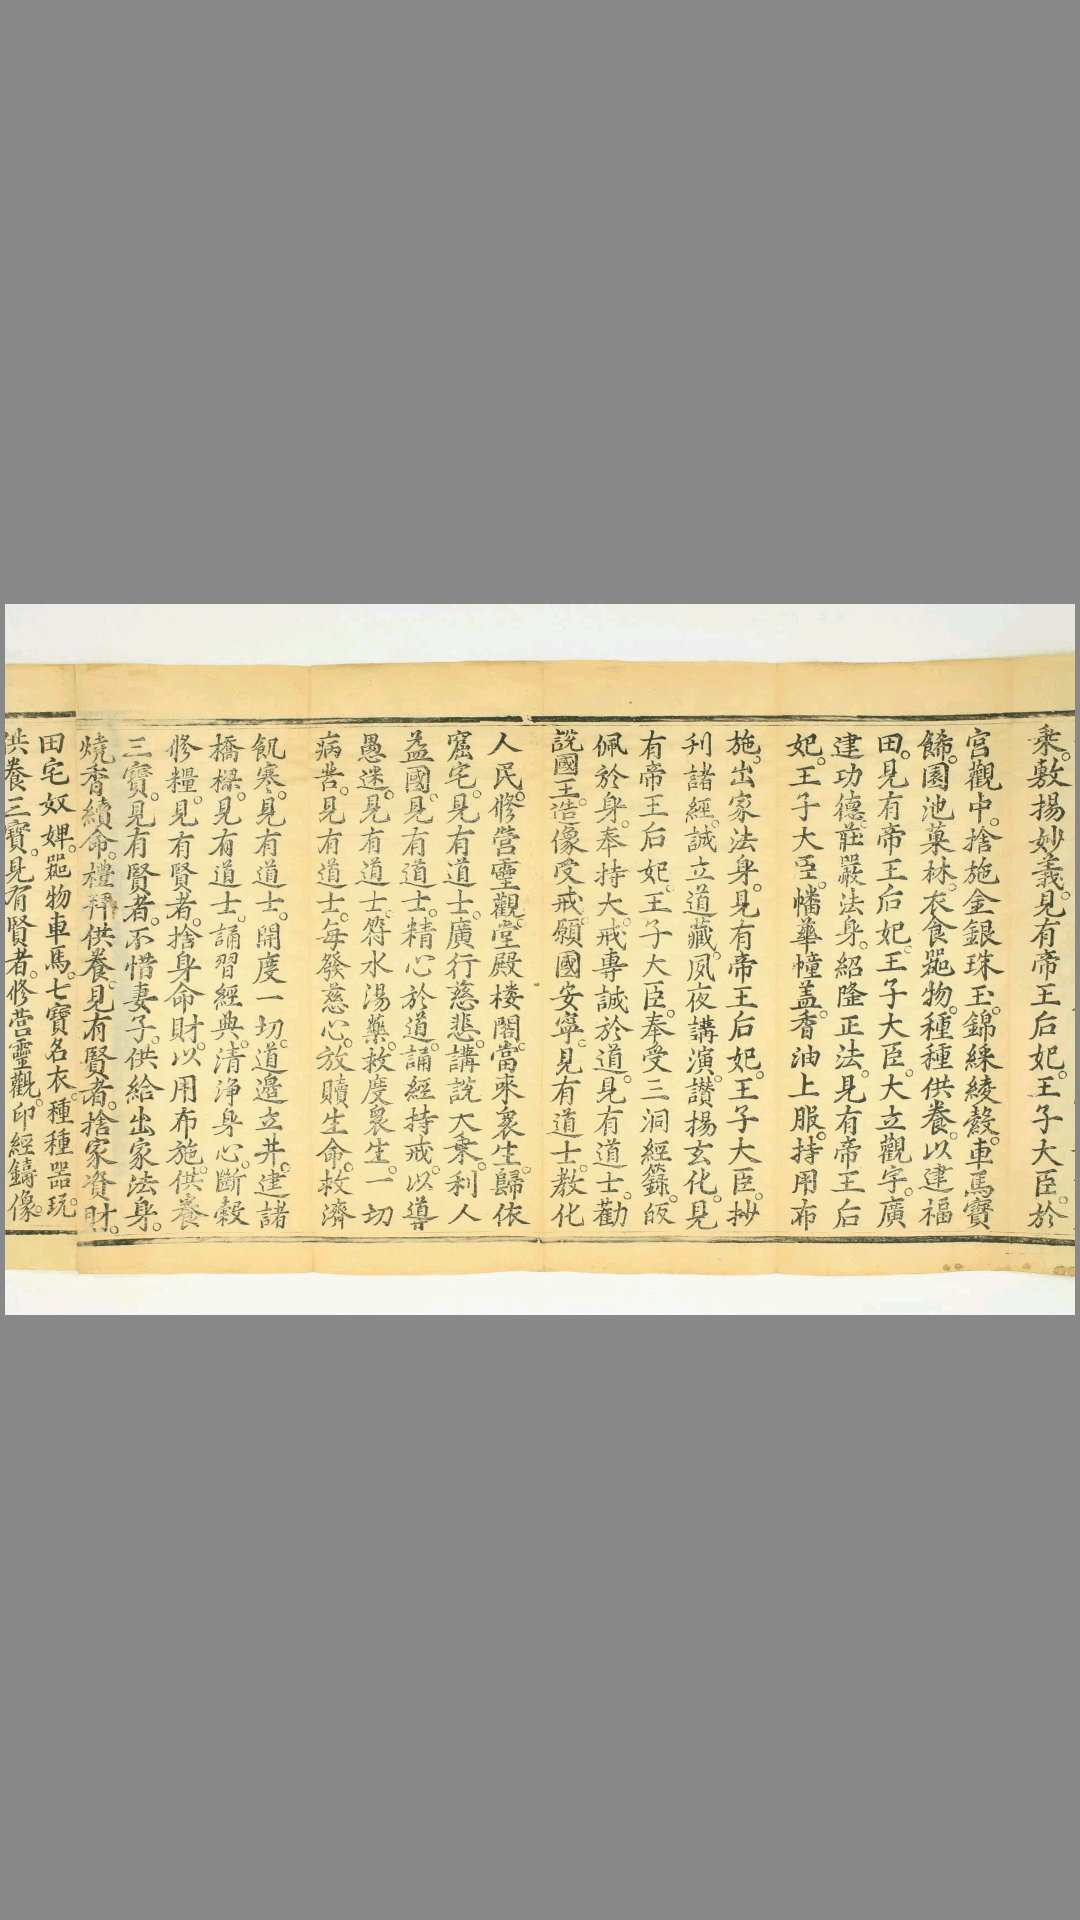 乗敷揚妙義見有帝王后妃王子大臣於
宮觀中捨施金銀珠玉錦綵綾縠車馬寶
餙園池菓林衣食噐物種種供養以建福
田見有帝王后妃王子大臣大立觀宇廣
建功德莊嚴法身紹隆正法見有帝王后
妃王子大臣幡華幢盖香油上服持用布
施出家法身見有帝王后妃王子大臣抄
刋諸經誠立道藏夙夜講演讃揚玄化見
有帝王后妃王子大臣奉受三洞經籙皈
佩於身奉持大戒專誠於道見有道士勸
說國王造像受戒願國安寧見有道士教化
人民修營靈觀堂殿楼閣當来衆生歸依
窟宅見有道士廣行慈悲講說大乗利人
益國見有道士精心於道誦經持戒以導
愚迷見有道士符水湯藥救度衆生一切
病苦見有道士每發慈心放贖生命救濟
飢寒見有道士開度一切道邊立井建諸
橋樑見有道士誦習經典清淨身心斷穀
修糧見有賢者捨身命財以用布施供養
三寶見有賢者不惜妻子供給出家法身
燒香續命禮拜供養見有賢者捨家資財
田宅奴婢噐物車馬七寶名衣種種噐玩
供養三寶見有賢者修營靈觀印經鑄像